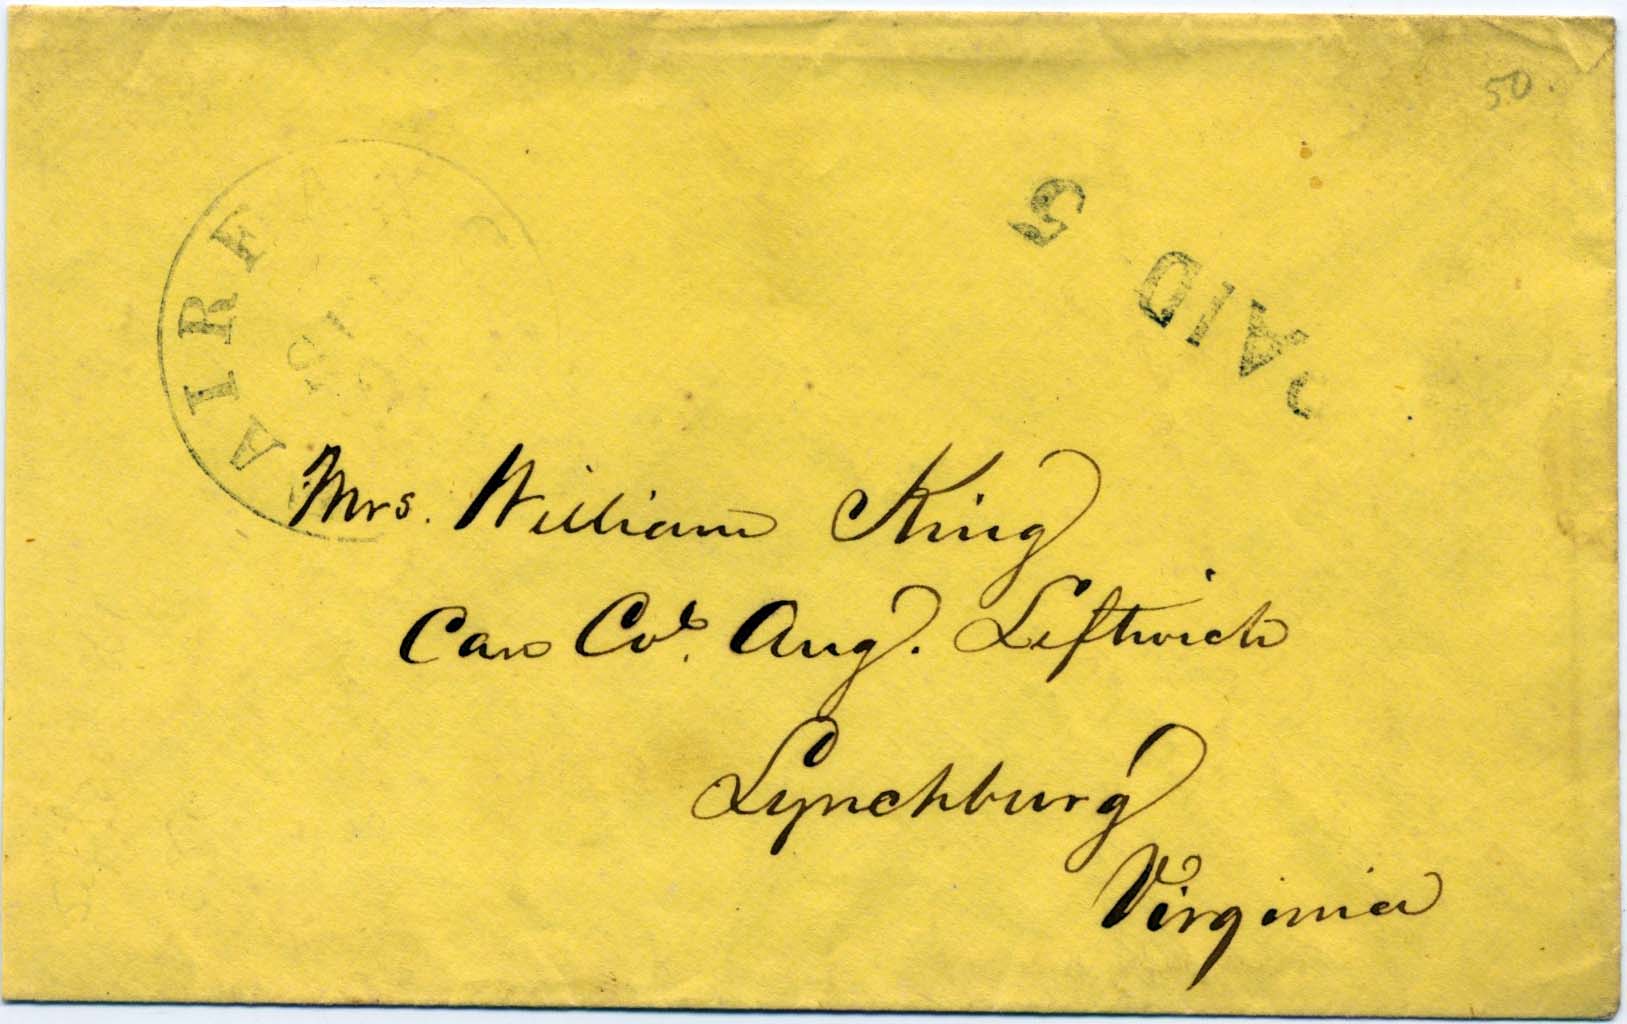 50.
PAID 5
AIRFA
15
Mrs. William King
Care Col. Aug. Leftwich
Lynchburg
Virginia